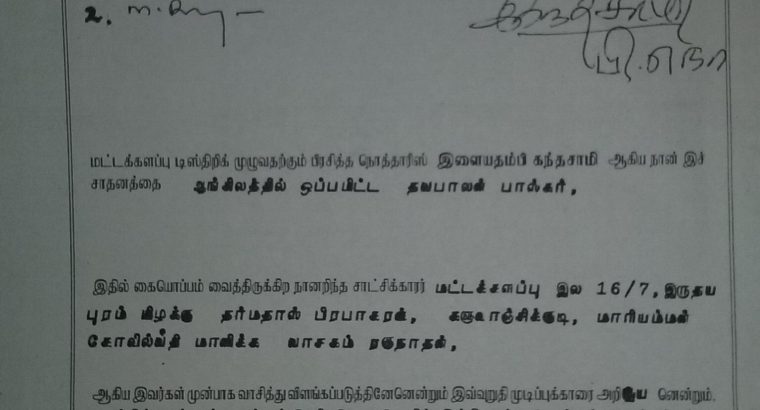 2.
கந்தசாமி
பி.எநொ
மட்டக்களப்பு டிஸ்திறிக் முழுவதற்கும் பிரசித்த நொத்தாரிஸ் இளையதம்பி கந்தசாமி ஆகிய நான் இச்
சாதனத்தை ஆங்கிலத்தில் ஒப்பமிட்ட தவபாலன் பாஸ்கர்,
இதில் கையொப்பம் வைத்திருக்கிற நானறிந்த சாட்சிக்காரர் மட்டக்களப்பு இல 16/7, இருதய
புரம் கிழக்கு தர்மதாஸ் பிரபாகரன், களுவாஞ்சிக்குடி, மாரியம்மன்
கோவில்வீதி மாணிக்க வாசகம் ரகுநாதன்,
ஆகிய இவர்கள் முன்பாக வாசித்து விளங்கப்படுத்தினேனென்றும் இவ்வுறுதி முடிப்புக்காரரை னென்றும்.